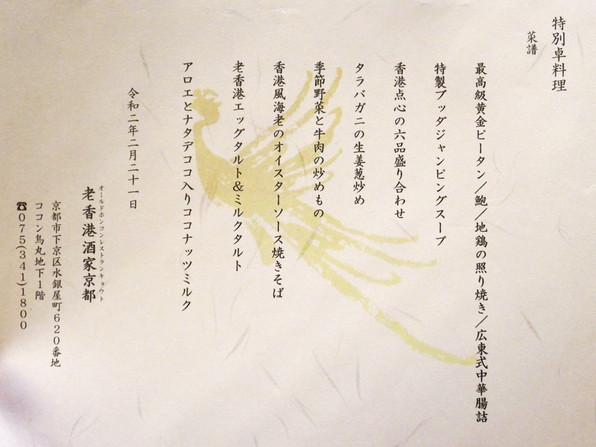 特別卓料理
菜譜
最高級黄金ピータン／鮑／地鶏の照り焼き／広東式中華腸詰
特製ブッダジャンピングスープ
香港点心の六品盛り合わせ
タラバガニの生姜葱炒め
季節野菜と牛肉の炒めもの
香港風海老のオイスターソース焼きそば
老香港エッグタルト＆ミルクタルト
アロエとナタデココ入りココナッツミルク
令和二年二月二十一日
オールドホンコンレストランキョウト
老香港酒家京都
京都市下京区水銀屋町620番地
ココン烏丸地下1階
☎075(341)1800